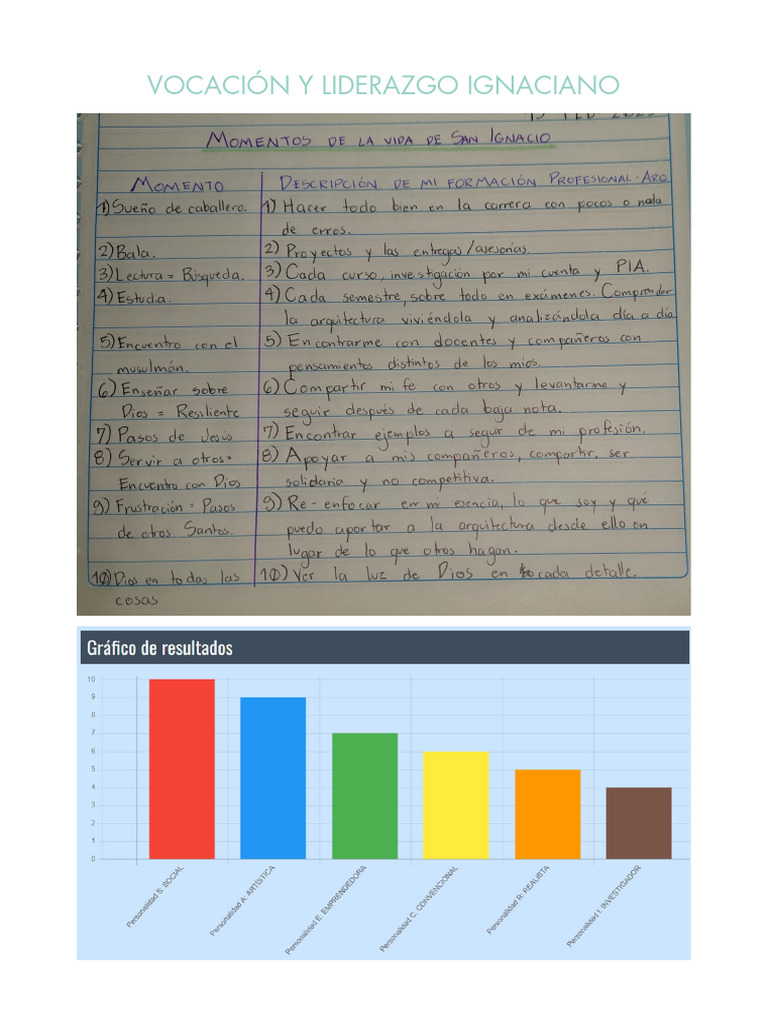 VOCACIÓN Y LIDERAZGO IGNACIANO
MOMENTOS DE LA VIDA DE SAN IGNACIO
MOMENTO DESCRIPCIÓN DE MI FORMACIÓN PROFESIONAL-ARQ
1) Sueño de caballero. 1) Hacer todo bien en la carrera con pocos o nada
de erros.
2) Bala. 2) Proyectos y las entregas/asesorías.
3) Lectura = Búsqueda. 3) Cada curso, investigación por mi cuenta y PIA.
4) Estudia. 4) Cada semestre, sobre todo en exámenes. Comprender
la arquitectura viviéndola y analizándola día a día
5) Encuentro con el 5) Encontrarme con docentes y compañeros con
musulmán. pensamientos distintos de los míos.
6) Enseñar sobre 6) Compartir mi fe con otros y levantarme y
Dios = Resiliente seguir después de cada baja nota.
7) Pasos de Jesús 7) Encontrar ejemplos a seguir de mi profesión.
8) Servir a otros= 8) Apoyar a mis compañeros, compartir, ser
Encuentro con Dios solidaria y no competitiva.
9) Frustración = Pasos 9) Re-enfocar en mi esencia, lo que soy y qué
de otros Santos. puedo aportar a la arquitectura desde ello en
lugar de lo que otros hagan.
10) Dios en todas las 10) Ver la luz de Dios en cada detalle.
cosas
Gráfico de resultados
10
9
8
7
6
5
4
3
2
1
0
Personalidad S. SOCIAL
Personalidad A. ARTÍSTICA
Personalidad E. EMPRENDEDORA
Personalidad C. CONVENCIONAL
Personalidad R. REALISTA
Personalidad I. INVESTIGADOR